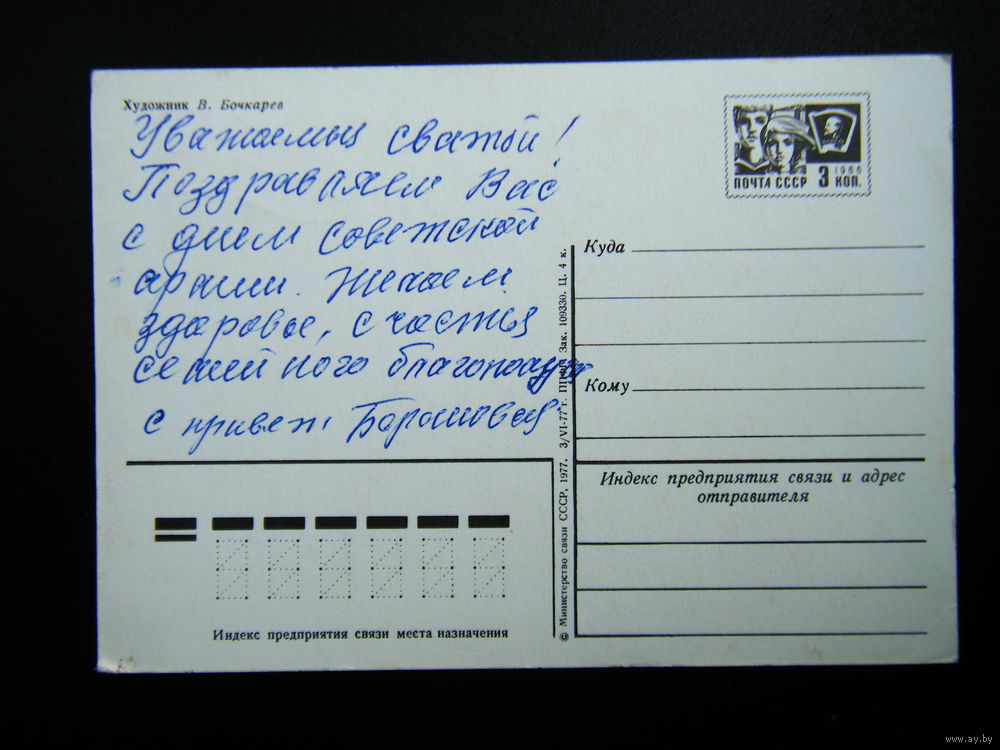 Художник В. Бочкарев
Уважаемый сватой!
Поздравляем Вас
с днем советской
армии. Желаем
здоровье, счастья
семейного благополуч
с привет
ПОЧТА СССР 3 КОП.
1966
Куда
Кому
Индекс предприятия связи и адрес
отправителя
Индекс предприятия связи места назначения
© Министерство связи СССР, 1977. 3/VI-77 г. Зак. 109330. Ц. 4 к.
www.ay.by